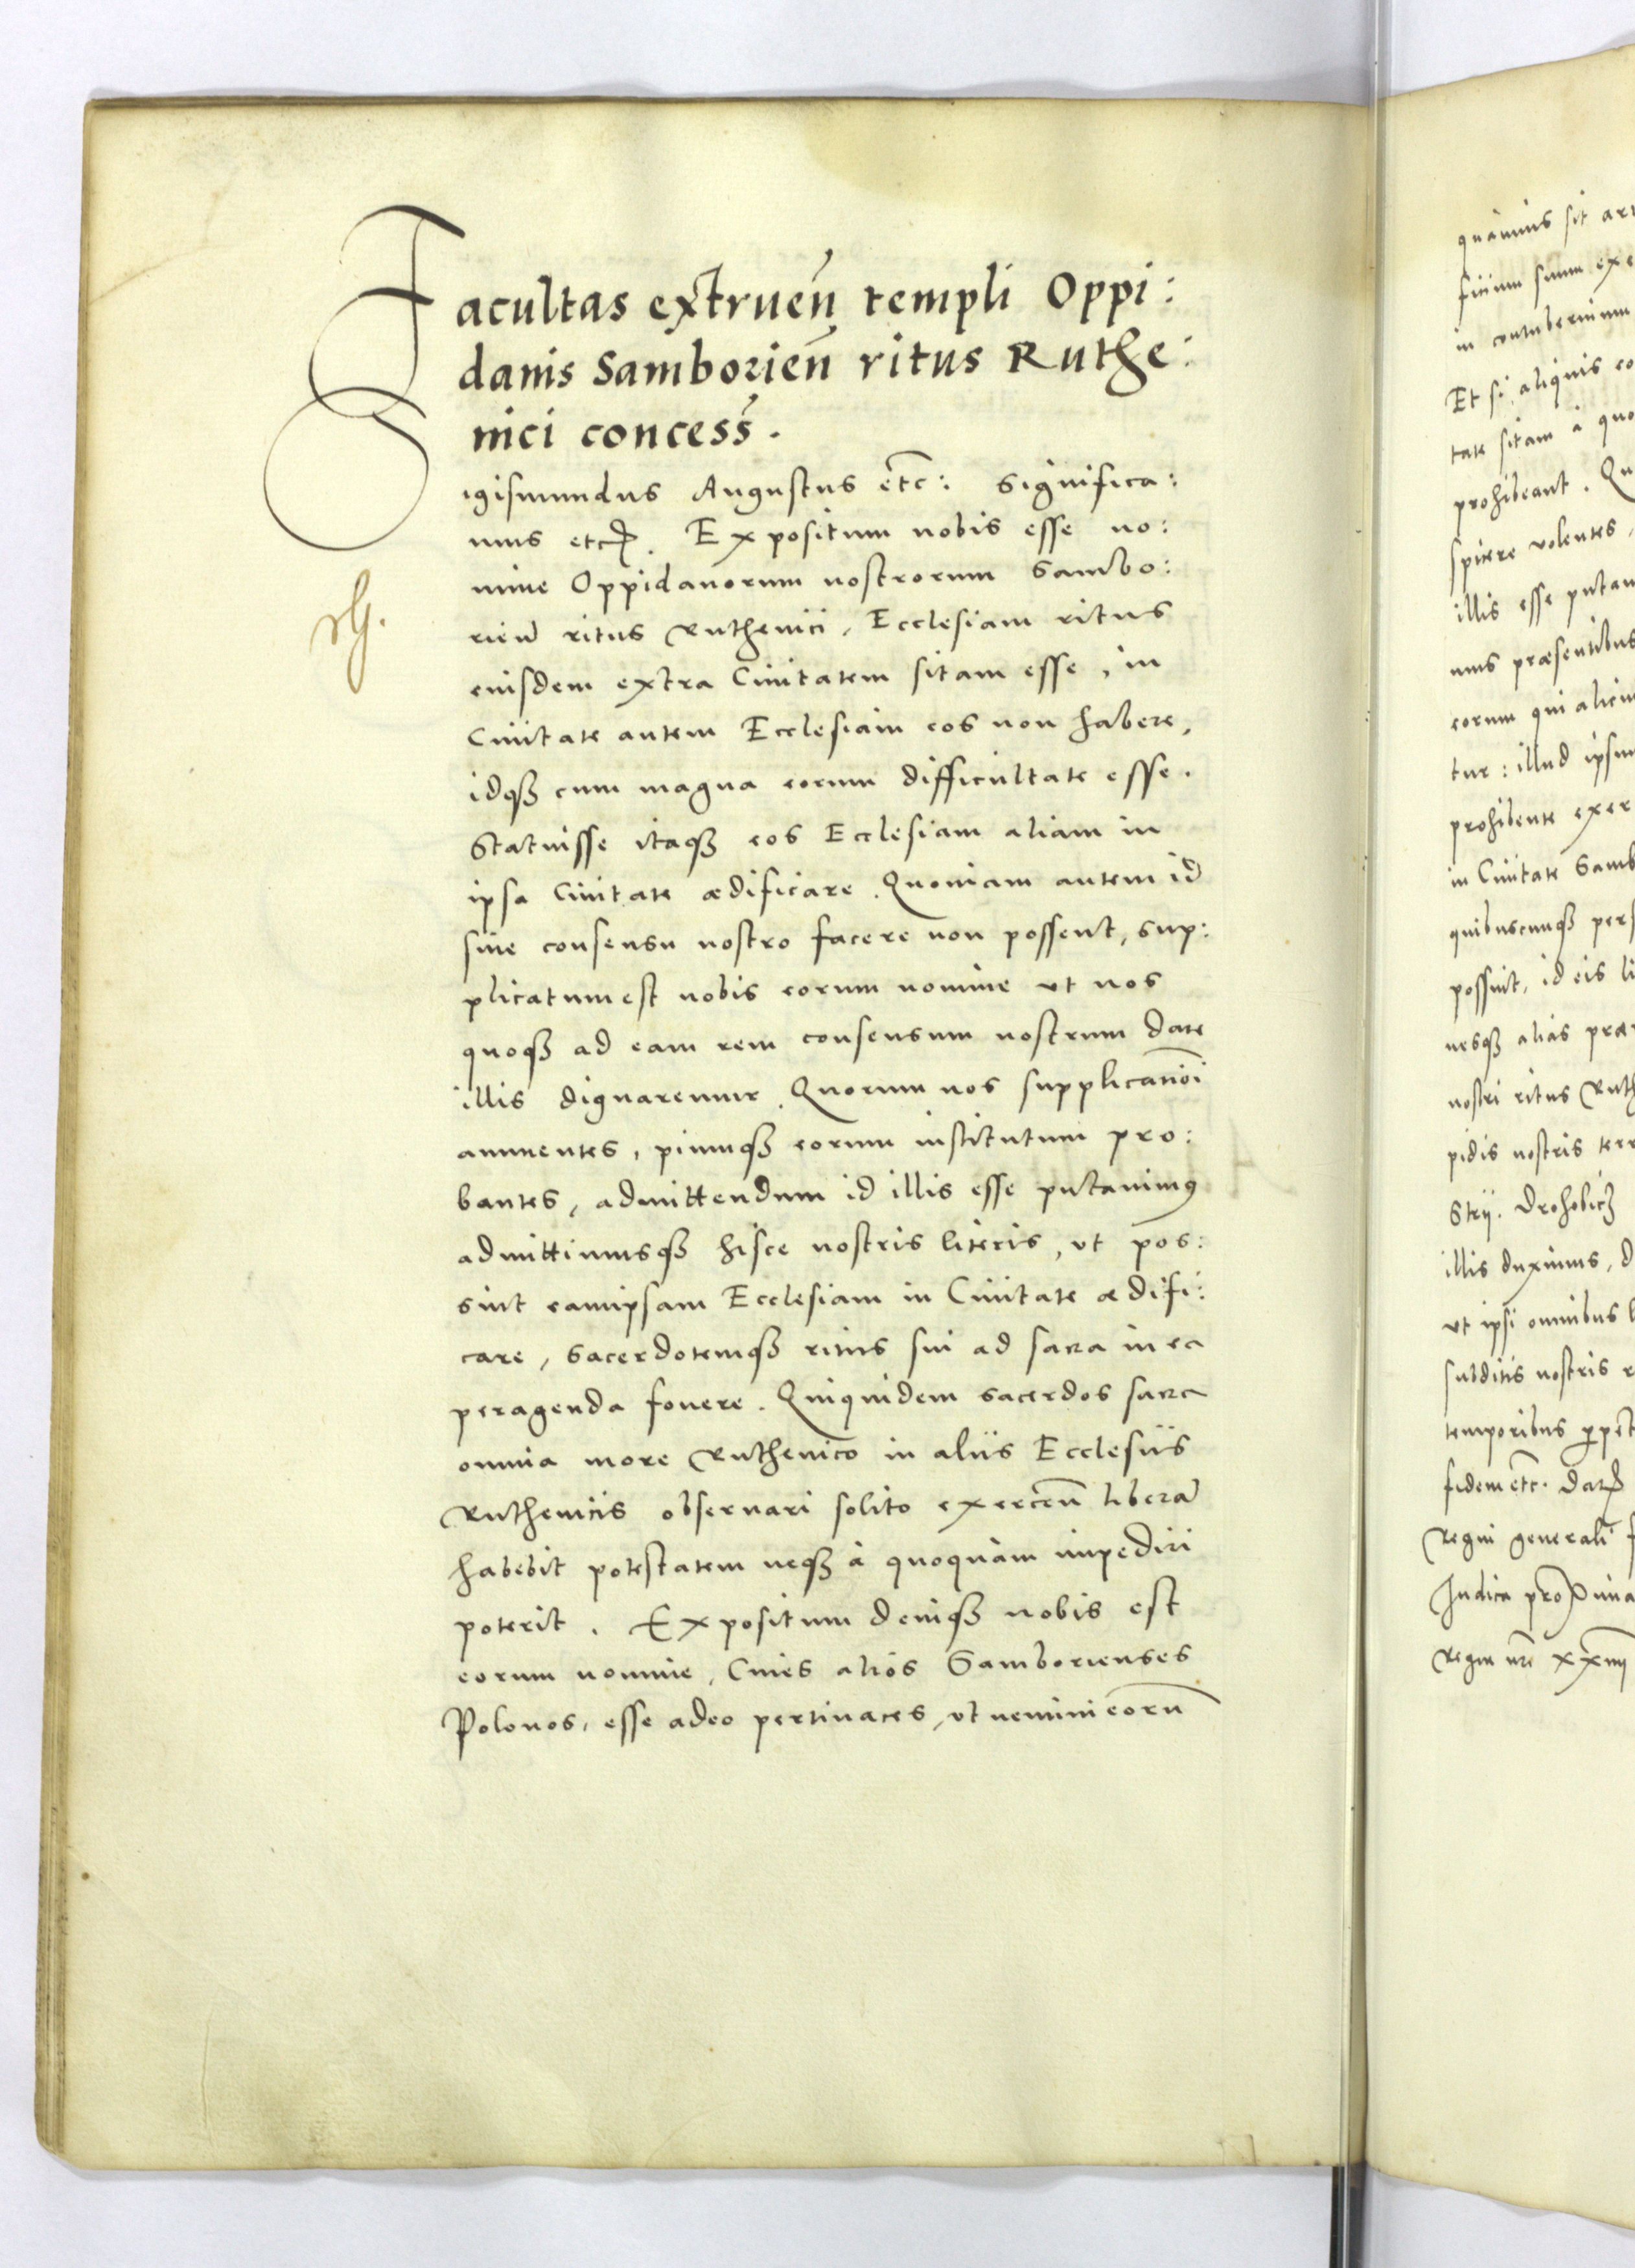 Facultas extruen templi Oppi:
danis Samborien ritus Ruthe:
nici concess.
Sigismundus Augustus etc: Significa:
mus etc. Expositum nobis esse no:
mine Oppidanorum nostrorum Sambo:
rien ritus Ruthenici, Ecclesiam ritus
eiusdem extra Ciuitatem sitam esse, in
Ciuitate autem Ecclesiam eos non habere,
idq3 cum magna eorum difficultate esse.
Statuisse itaq3 eos Ecclesiam aliam in
ipsa Ciuitate ædificare. Quoniam autem id
sine consensu nostro facere non possent, sup:
plicatum est nobis eorum nomine vt nos
quoq3 ad eam rem consensum nostrum dare
illis dignaremur. Quorum nos supplicationi
annuentes, piumq3 eorum institutum pro:
bantes, admittendum id illis esse putauimus
admittimusq3 hisce nostris literis, vt pos:
sint eamipsam Ecclesiam in Ciuitate ædifi:
care, Sacerdotemq3 ritus sui ad sacra in ea
peragenda fouere. Quiquidem sacerdos sacra
omnia more Ruthenico in aliis Ecclesiis
Ruthenicis obseruari solito exercen libera
habebit potestatem neq3 à quoquàm impediri
poterit. Expositum deniq3 nobis est
eorum nomine, Ciues alios Samborienses
Polonos, esse adeo pertinaces, vt nemini eoru
quàmuis sit
ficium suum
in contubernium
Et si aliquis
tate sitam à
prohibeant.
spicere volentes,
illis esse
mus præsentibus
eorum qui
tur: illud
prohibente
in Ciuitate
quibuscunq3
possint, id eis
nesq3 alias
nostri ritus
pidis nostris
Stry. Drohobicz
illis duximus,
vt ipsi omnibus
subditis nostris
temporibus
fidem etc. Dat
Regni generali
Indica
Regni nri